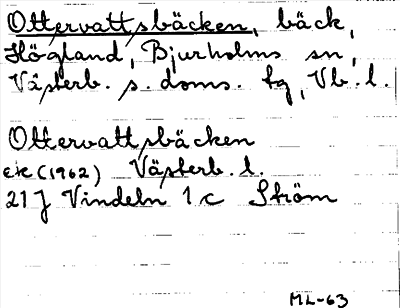 Ottervattsbäcken, bäck,
Högland, Bjurholms sn,
Västerb. s. doms. tg, Vb. l.
Ottervattsbäcken
ek (1962) Västerb. l.
21 J Vindeln 1 c Ström
ML-63